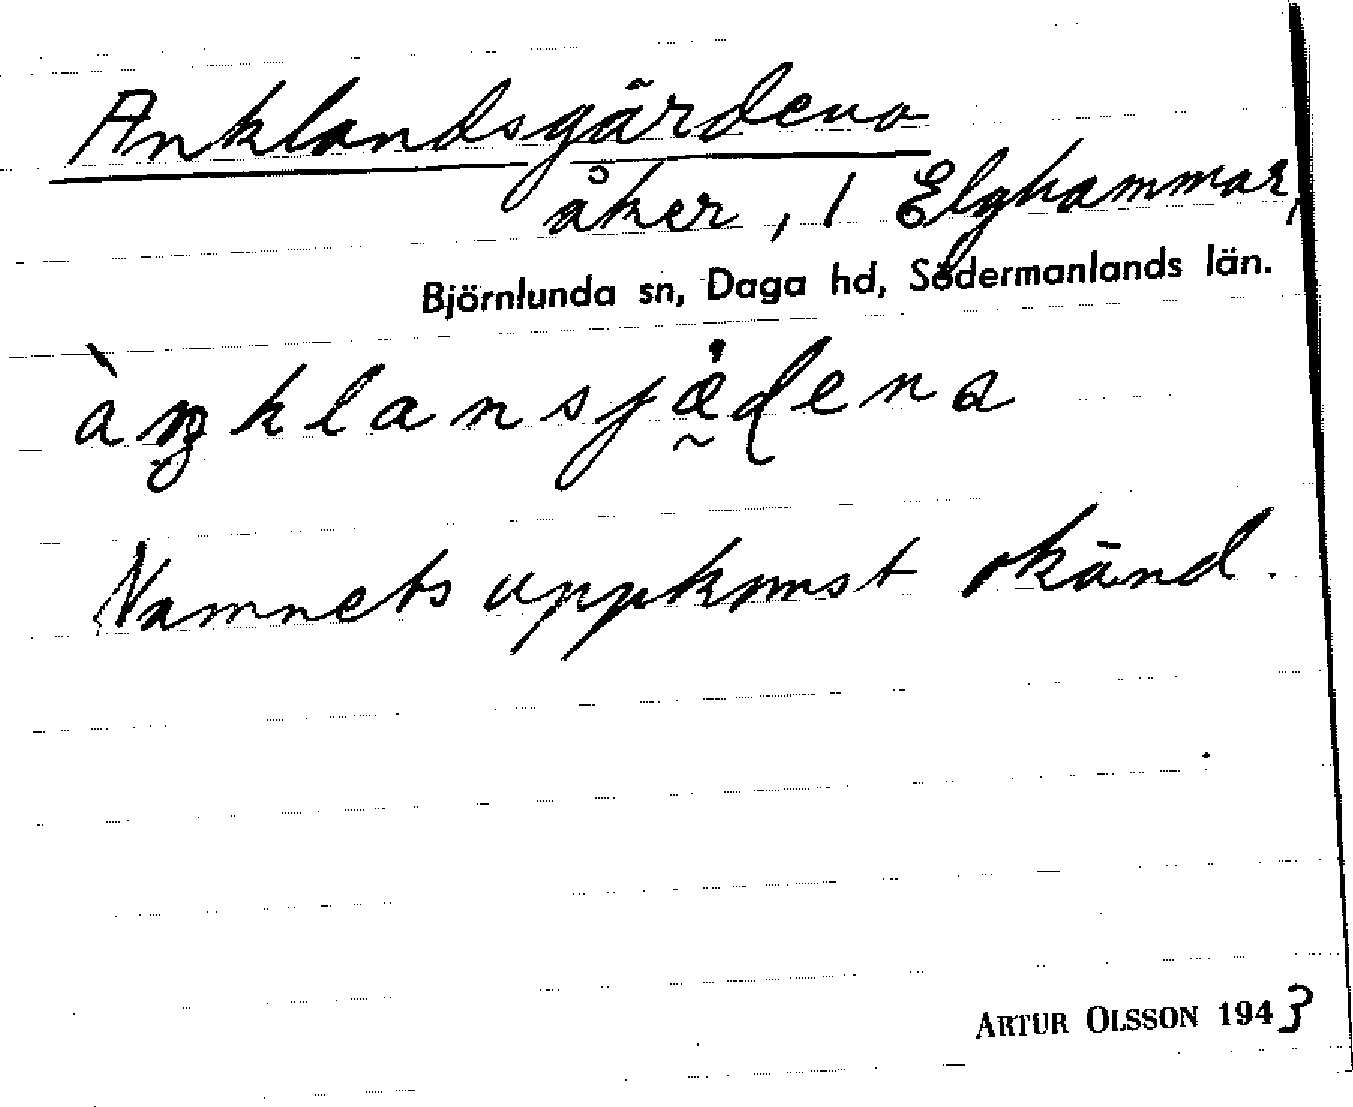 Anklandsgärdena
åker, 1 Elghammar,
Björnlunda sn, Daga hd, Södermanlands län.
àŋklansjädena
Namnets uppkomst okänd.
ARTUR OLSSON 1943